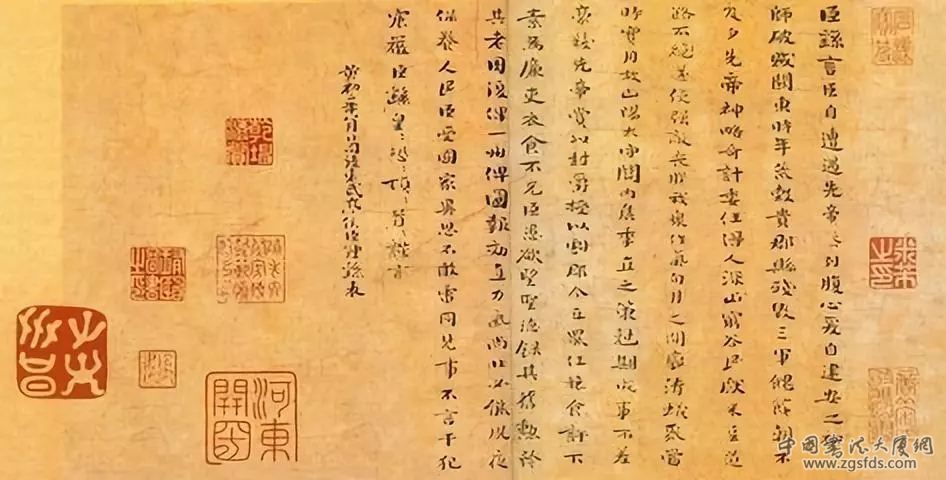 臣繇言臣自遭遇先帝忝列腹心爰自建安之初王
師破賊關東時年荒穀貴郡縣殘毀三軍餽饟朝不
及夕先帝神略奇計委任得人深山窮谷民獻米豆道
路不絕遂使強敵喪膽我眾作氣旬月之間廓清蟻聚當
時實用故山陽太守關內侯季直之策剋期成事不差
豪髮先帝賞以封爵授以劇郡今直罷任旅食許下
素為廉吏衣食不充臣愚欲望聖德錄其舊勳矜
其老困復俾一州俾圖報效直力氣尚壯必能夙夜
保養人民臣受國家異恩不敢雷同見事不言干犯
宸嚴臣繇皇皇恐恐頓首頓首謹言
黃初二年八月日司徒東武亭侯臣鍾繇表
米芾之印
河東
中国书法大厦網
www.zgsfds.com